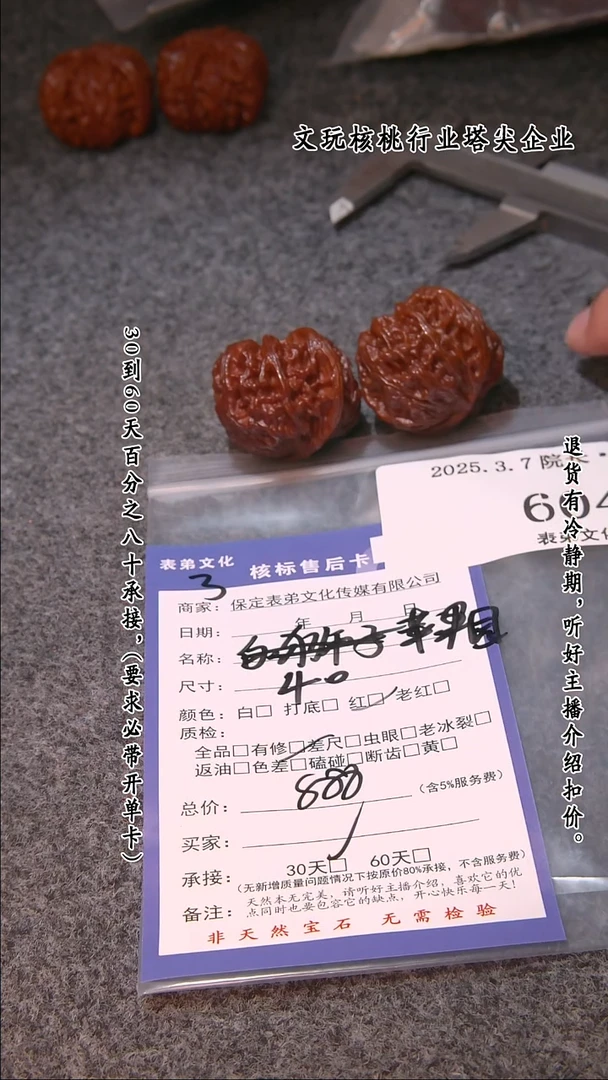 文玩核桃行业塔尖企业
30到60天百分之八十承接，（要求必带开单卡）
退货有冷静期，听好主播介绍扣价。
2025.3.7 院长·
604
表弟文化
表弟文化 核标售后卡
3
商家：保定表弟文化传媒有限公司
日期： 年 月 日
名称：
尺寸：40
颜色：白□ 打底□ 红□ 老红□
质检：
全品□有修□差尺□虫眼□老冰裂□
返油□色差□磕碰□断齿□黄□
总价：888（含5%服务费）
买家：
承接：30天□ 60天□
（无新增质量问题情况下按原价80%承接，不含服务费）
备注：天然本无完美，请听好主播介绍，喜欢它的优
点同时也要包容它的缺点，开心快乐每一天！
非天然宝石 无需检验